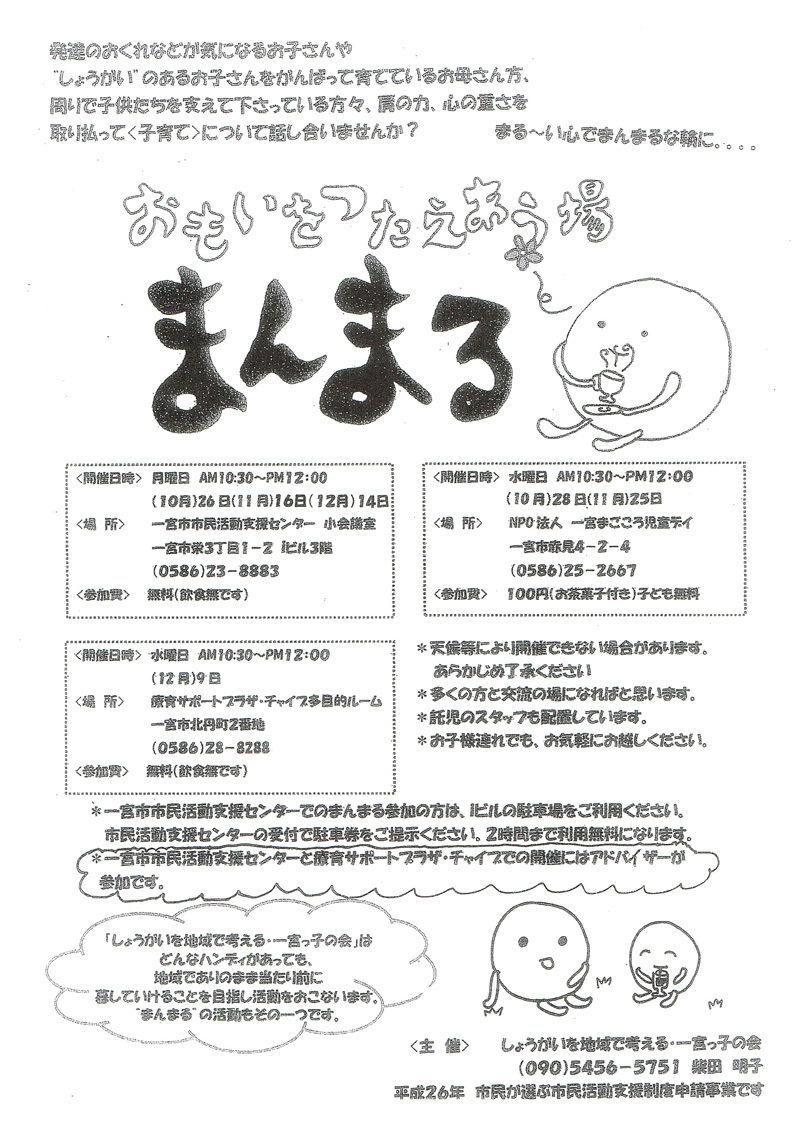 発達のおくれなどが気になるお子さんや
"しょうがい"のあるお子さんをがんばって育てているお母さん方、
周りで子供たちを支えて下さっている方々、肩の力、心の重さを
取り払って<子育て>について話し合いませんか？　まる～い心でまんまるな輪に。。。。
おもいをつたえあう場
まんまる
<開催日時> 月曜日 AM10:30～PM12:00
(10月)26日(11月)16日(12月)14日
<場 所> 一宮市市民活動支援センター 小会議室
一宮市栄3丁目1-2 iビル3階
(0586)23-8883
<参加費> 無料(飲食無です)
<開催日時> 水曜日 AM10:30～PM12:00
(10月)28日(11月)25日
<場 所> NPO法人 一宮まごころ児童デイ
一宮市赤見4-2-4
(0586)25-2667
<参加費> 100円(お茶菓子付き)子ども無料
<開催日時> 水曜日 AM10:30～PM12:00
(12月)9日
<場 所> 療育サポートプラザ・チャイブ多目的ルーム
一宮市北丹町2番地
(0586)28-8288
<参加費> 無料(飲食無です)
*天候等により開催できない場合があります。
あらかじめ了承ください
*多くの方と交流の場になればと思います。
*託児のスタッフも配置しています。
*お子様連れでも、お気軽にお越しください。
*一宮市市民活動支援センターでのまんまる参加の方は、iビルの駐車場をご利用ください。
市民活動支援センターの受付で駐車券をご提示ください。2時間まで利用無料になります。
*一宮市市民活動支援センターと療育サポートプラザ・チャイブでの開催にはアドバイザーが
参加です。
「しょうがいを地域で考える・一宮っ子の会」は
どんなハンディがあっても、
地域でありのまま当たり前に
暮していけることを目指し活動をおこないます。
"まんまる"の活動もその一つです。
<主 催> しょうがいを地域で考える・一宮っ子の会
(090)5456-5751 柴田 明子
平成26年 市民が選ぶ市民活動支援制度申請事業です